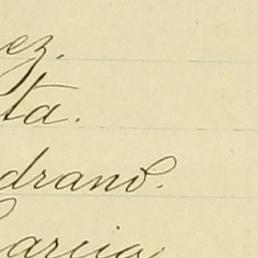 ez.
ta.
drano.
Garcia